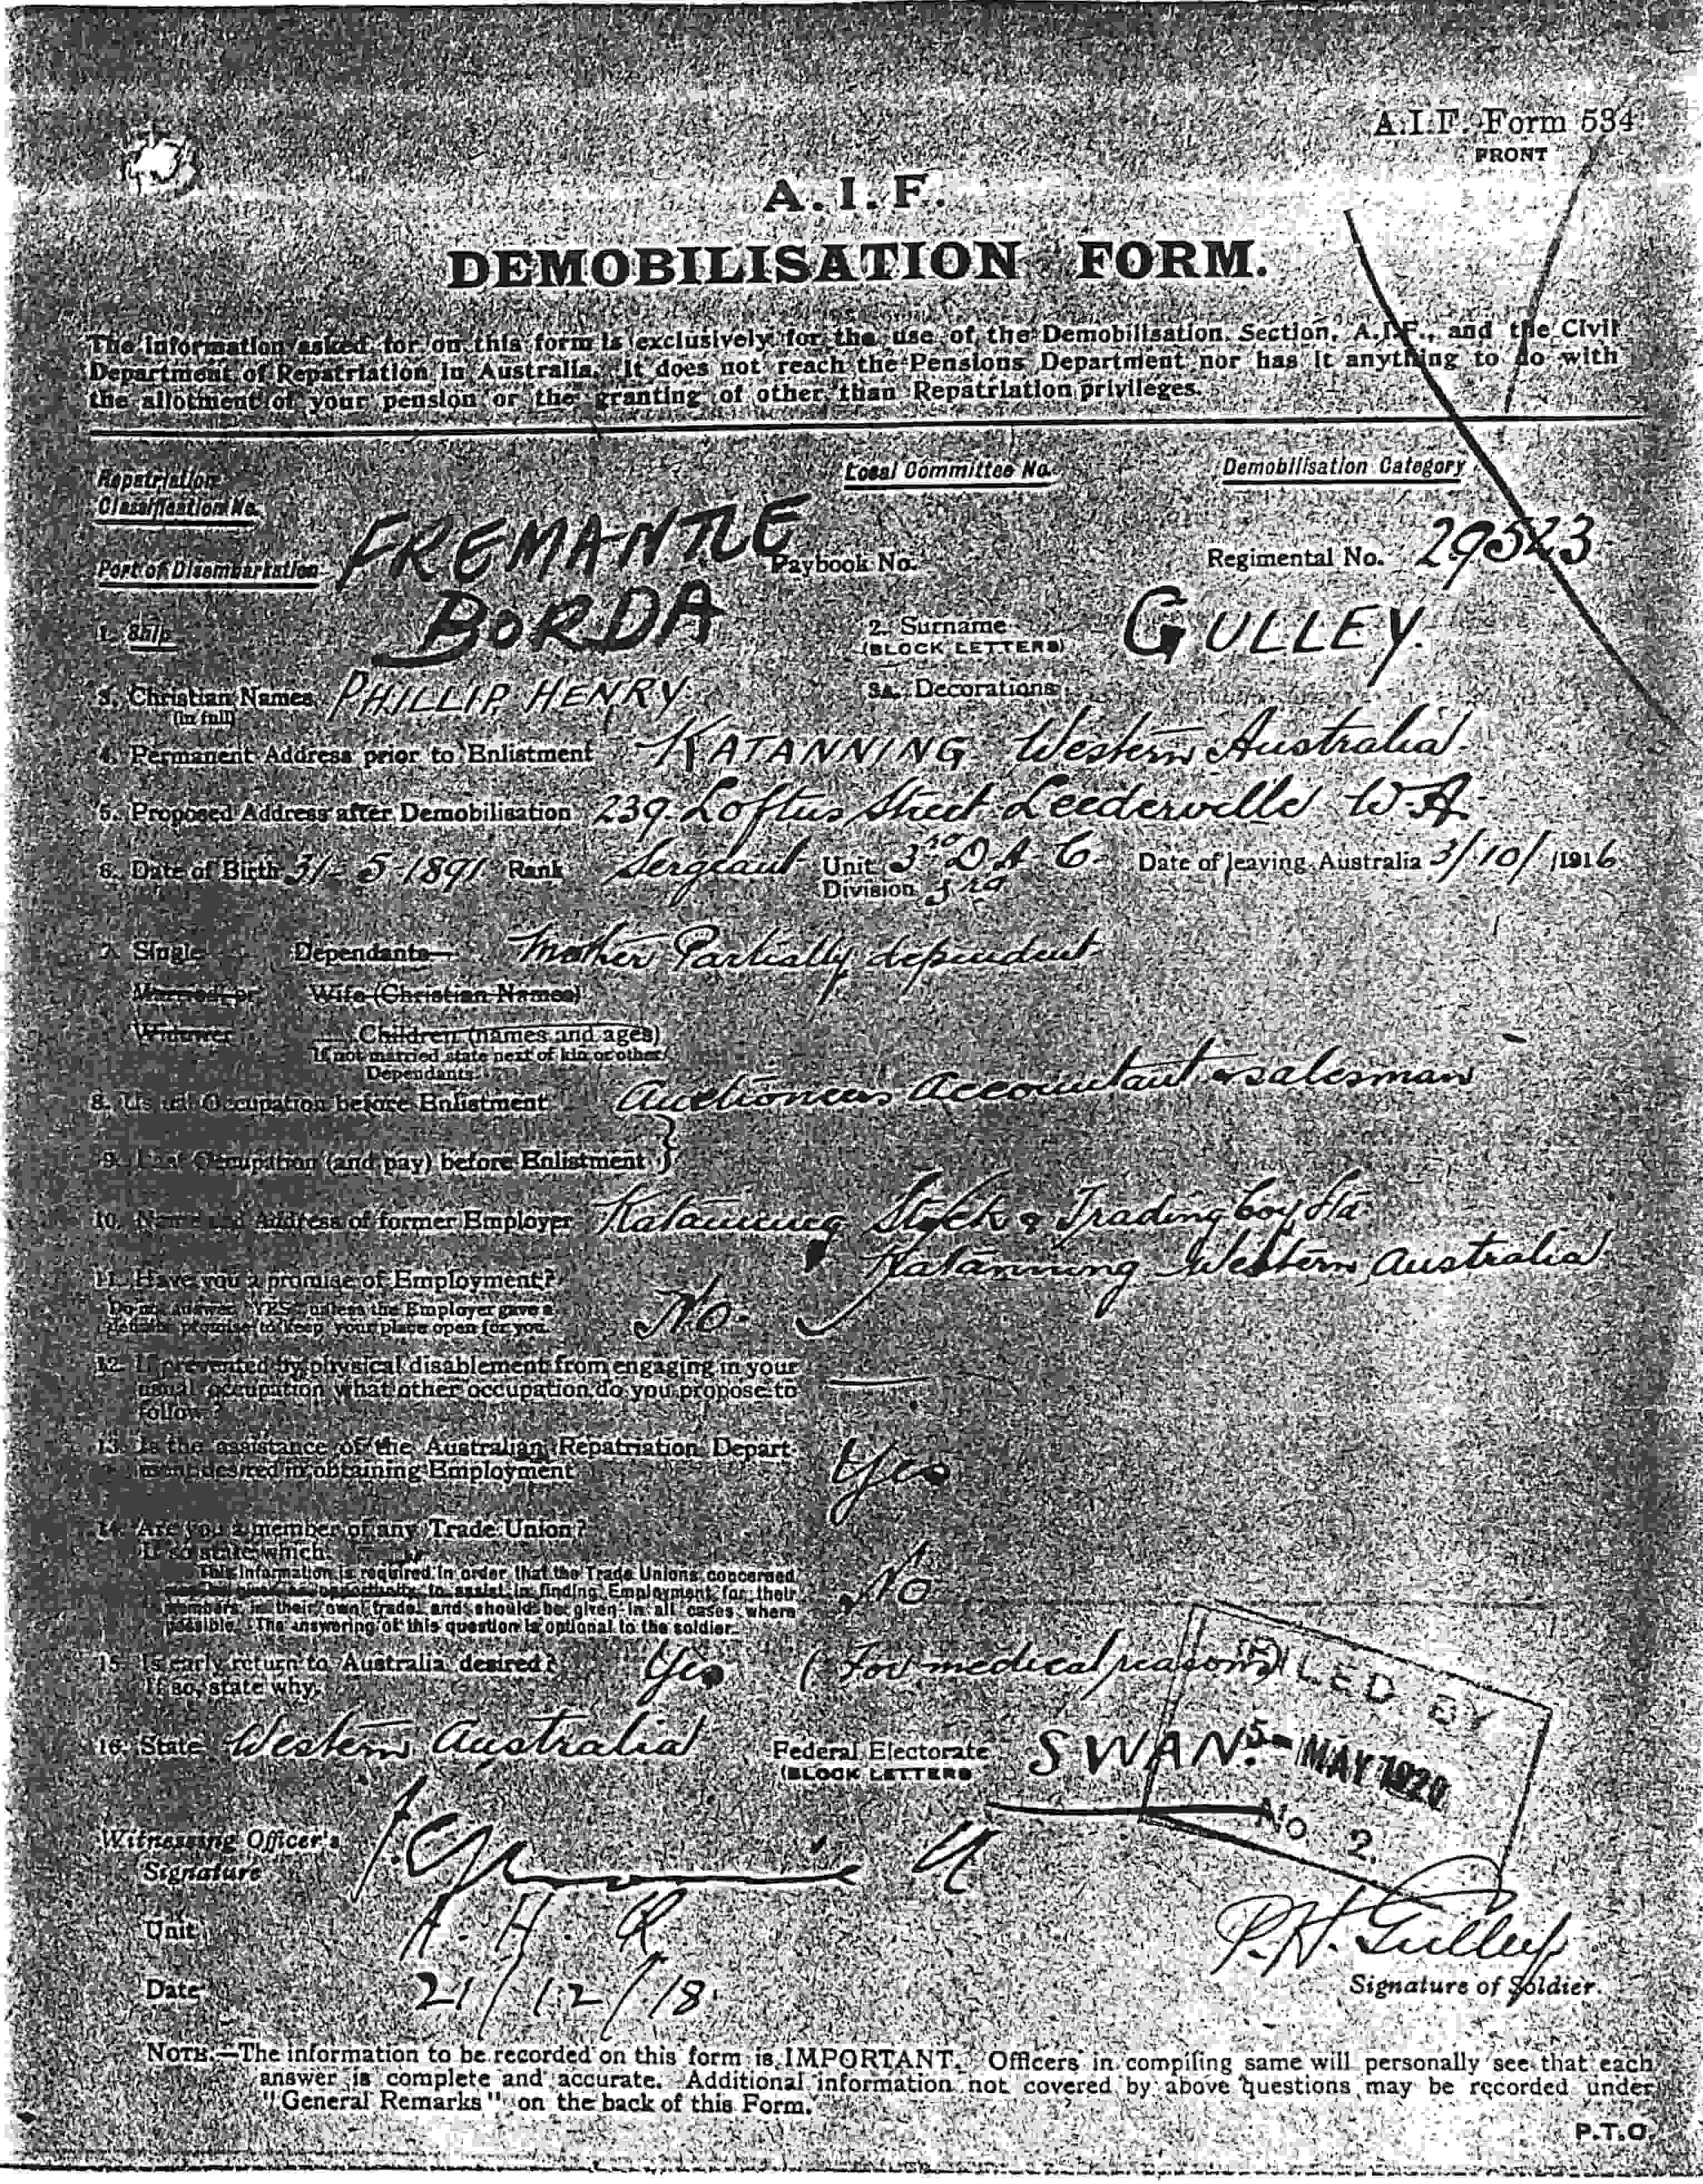 A.I.F. Form 534
FRONT
A.I.F.
DEMOBILISATION FORM.
The information asked for on this form is exclusively for the use of the Demobilisation Section, A.I.F., and the Civil
Department of Repatriation in Australia. It does not reach the Pensions Department nor has it anything to do with
the allotment of your pension or the granting of other than Repatriation privileges.
Repatriation Classification No.
Local Committee No.
Demobilisation Category
Port of Disembarkation FREMANTLE Paybook No. Regimental No. 29523
1. Ship BORDA 2. Surname (BLOCK LETTERS) GULLEY.
3. Christian Names (in full) PHILLIP HENRY. 3A. Decorations
4. Permanent Address prior to Enlistment KATANNING Western Australia.
5. Proposed Address after Demobilisation 239 Loftus Street Leederville W.A.
6. Date of Birth 31-5-1891 Rank Sergeant Unit 3rd D.A.C. Date of leaving Australia 3/10/1916
Division 3rd
7. Single Dependants— Mother Partially dependent
Married or Wife (Christian Names)
Widower Children (names and ages)
If not married state next of kin or other
Dependants.
8. Usual Occupation before Enlistment Auctioneers Accountant & salesman
9. Last Occupation (and pay) before Enlistment }
10. Name and Address of former Employer Katanning Stock & Trading Coy Ltd.
Katanning Western Australia
11. Have you a promise of Employment? No.
Do not answer "YES" unless the Employer gave a
definite promise to keep your place open for you.
12. If prevented by physical disablement from engaging in your —
usual occupation what other occupation do you propose to
follow?
13. Is the assistance of the Australian Repatriation Depart- Yes
ment desired in obtaining Employment
14. Are you a member of any Trade Union?
If so state which.
This information is required in order that the Trade Unions concerned No
may be given an opportunity to assist in finding Employment for their
members in their own trade and should be given in all cases where
possible. The answering of this question is optional to the soldier.
15. Is early return to Australia desired? Yes (For medical reasons)
If so, state why.
FILED BY
5- MAY 1920
No 2.
16. State Western Australia Federal Electorate (BLOCK LETTERS SWAN.
Witnessing Officer's
Signature
Unit A.H.Q
P.H. Gulley
Date 21/12/18.
Signature of Soldier.
NOTE.—The information to be recorded on this form is IMPORTANT. Officers in compiling same will personally see that each
answer is complete and accurate. Additional information not covered by above questions may be recorded under
"General Remarks" on the back of this Form.
P.T.O.